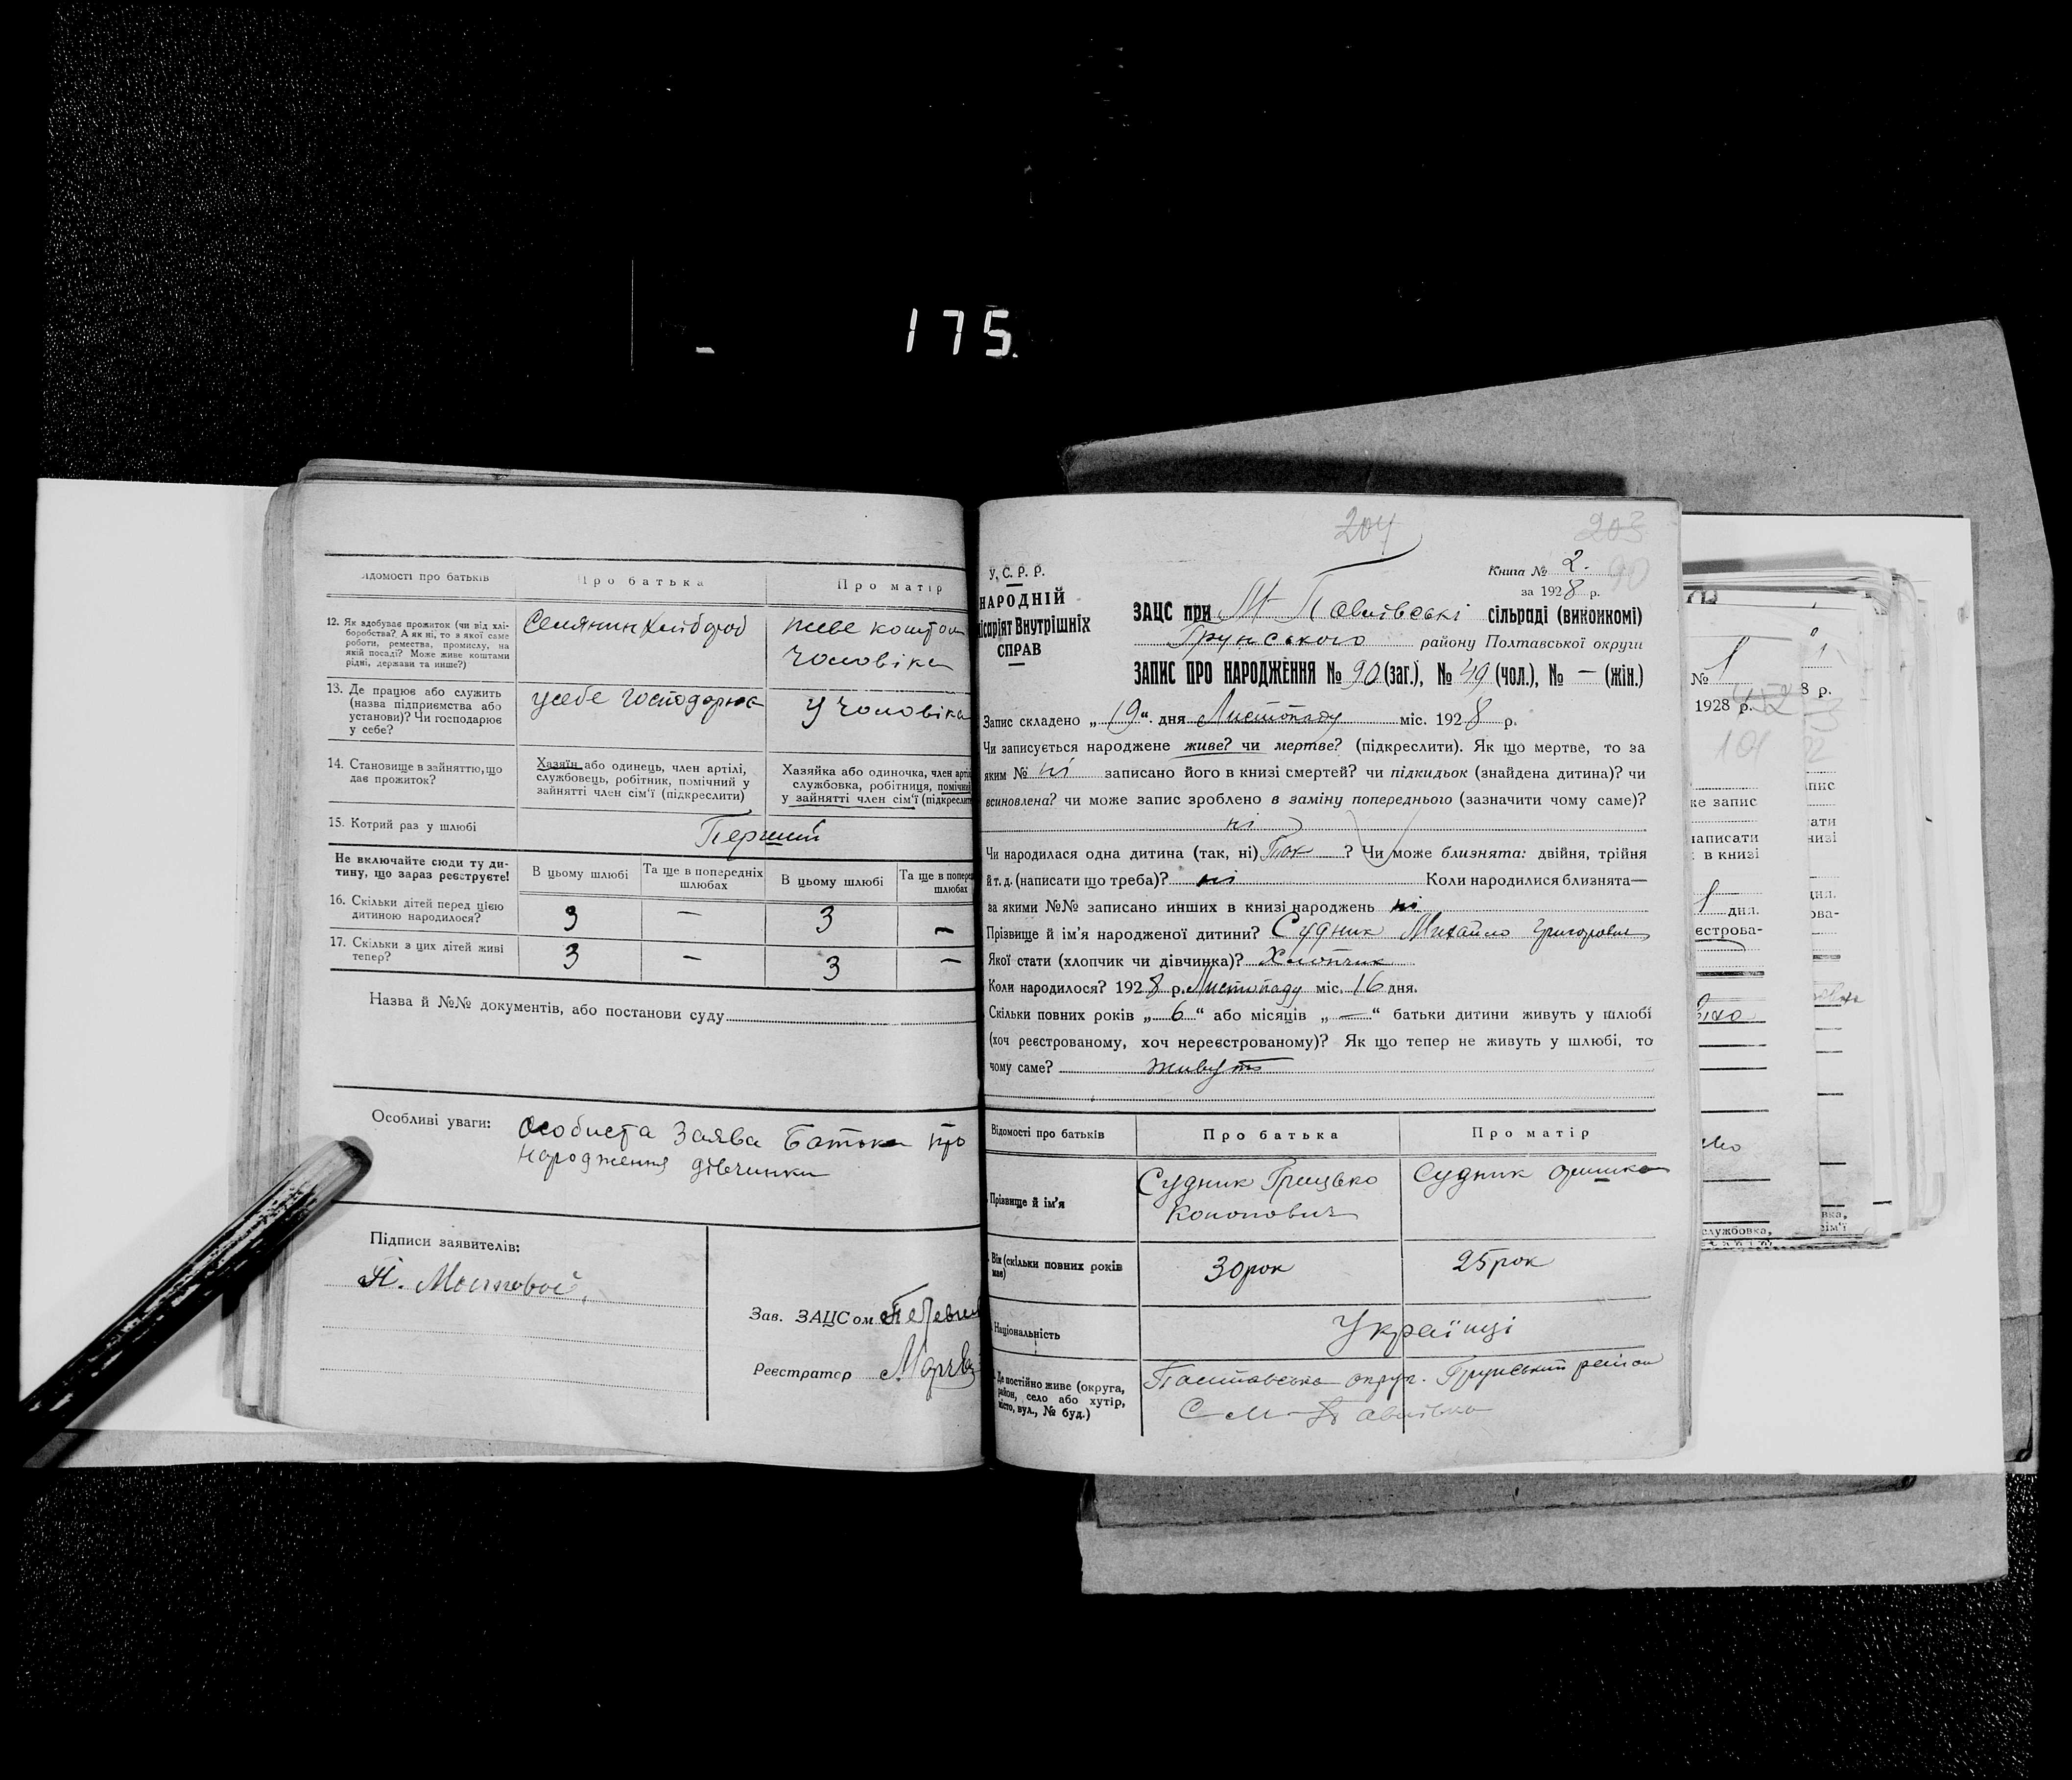 175.
Відомості про батьків
Про батька
Про матір
12. Як здобуває прожиток (чи від хлі-
боробства? А як ні, то з якої саме
роботи, ремества, промислу, на
якій посаді? Може живе коштами
рідні, держави та инше?)
Селянин хлібороб
живе коштом
чоловіка
13. Де працює або служить
(назва підприємства або
установи)? Чи господарює
у себе?
у себе господарює
У чоловіка
14. Становище в зайняттю, що
дає прожиток?
Хазяїн або одинець, член артілі,
службовець, робітник, помічний у
зайнятті член сім'ї (підкреслити)
Хазяйка або одиночка, член артіл
службовка, робітниця, помічний
у зайнятті член сім'ї (підкреслити
15. Котрий раз у шлюбі
Перший
Не включайте сюди ту ди-
тину, що зараз реєструєте!
В цьому шлюбі
Та ще в попередніх
шлюбах
В цьому шлюбі
Та ще в поперед
шлюбах
16. Скільки дітей перед цією
дитиною народилося?
3 — 3 —
17. Скільки з цих дітей живі
тепер?
3 — 3 —
Назва й №№ документів, або постанови суду
Особливі уваги:
Особиста Заява Батька про
народження дівчинки
Підписи заявителів:
Зав. ЗАЦСом
Реєстратор
204
203
90
У. С. Р. Р.
НАРОДНІЙ
місаріят Внутрішніх
СПРАВ
Книга № 2.
за 1928 р.
ЗАЦС при М Павлівські сільраді (виконкомі)
Грунського району Полтавської округи
ЗАПИС ПРО НАРОДЖЕННЯ № 90 (заг.), № 49 (чол.), № — (жін.)
Запис складено „19“ дня Листопаду міс. 1928 р.
Чи записується народжене живе? чи мертве? (підкреслити). Як що мертве, то за
яким № ні записано його в книзі смертей? чи підкидьок (знайдена дитина)? чи
всиновлена? чи може запис зроблено в заміну попереднього (зазначити чому саме)?
ні
Чи народилася одна дитина (так, ні) Так ? Чи може близнята: двійня, трійня
й т. д. (написати що треба)? ні Коли народилися близнята—
за якими №№ записано инших в книзі народжень ні
Прізвище й ім'я народженої дитини? Судник Михайло Григорович
Якої стати (хлопчик чи дівчинка)? Хлопчик
Коли народилося? 1928 р. Листопаду міс. 16 дня.
Скільки повних років „6“ або місяців „—“ батьки дитини живуть у шлюбі
(хоч реєстрованому, хоч нереєстрованому)? Як що тепер не живуть у шлюбі, то
чому саме? живуть
Відомості про батьків
Про батька
Про матір
Прізвище й ім'я
Судник Грицько
Кононович
Судник Оришка
Вік (скільки повних років
має)
30 рок
25 рок
Національність
Українці
Де постійно живе (округа,
район, село або хутір,
місто, вул., № буд.)
Полтавська округ. Грунський район
С—М—Павлівка
№ 1
1928 р.
8 р.
101
же запис
написати
в книзі
дня.
єстрова-
службовка,